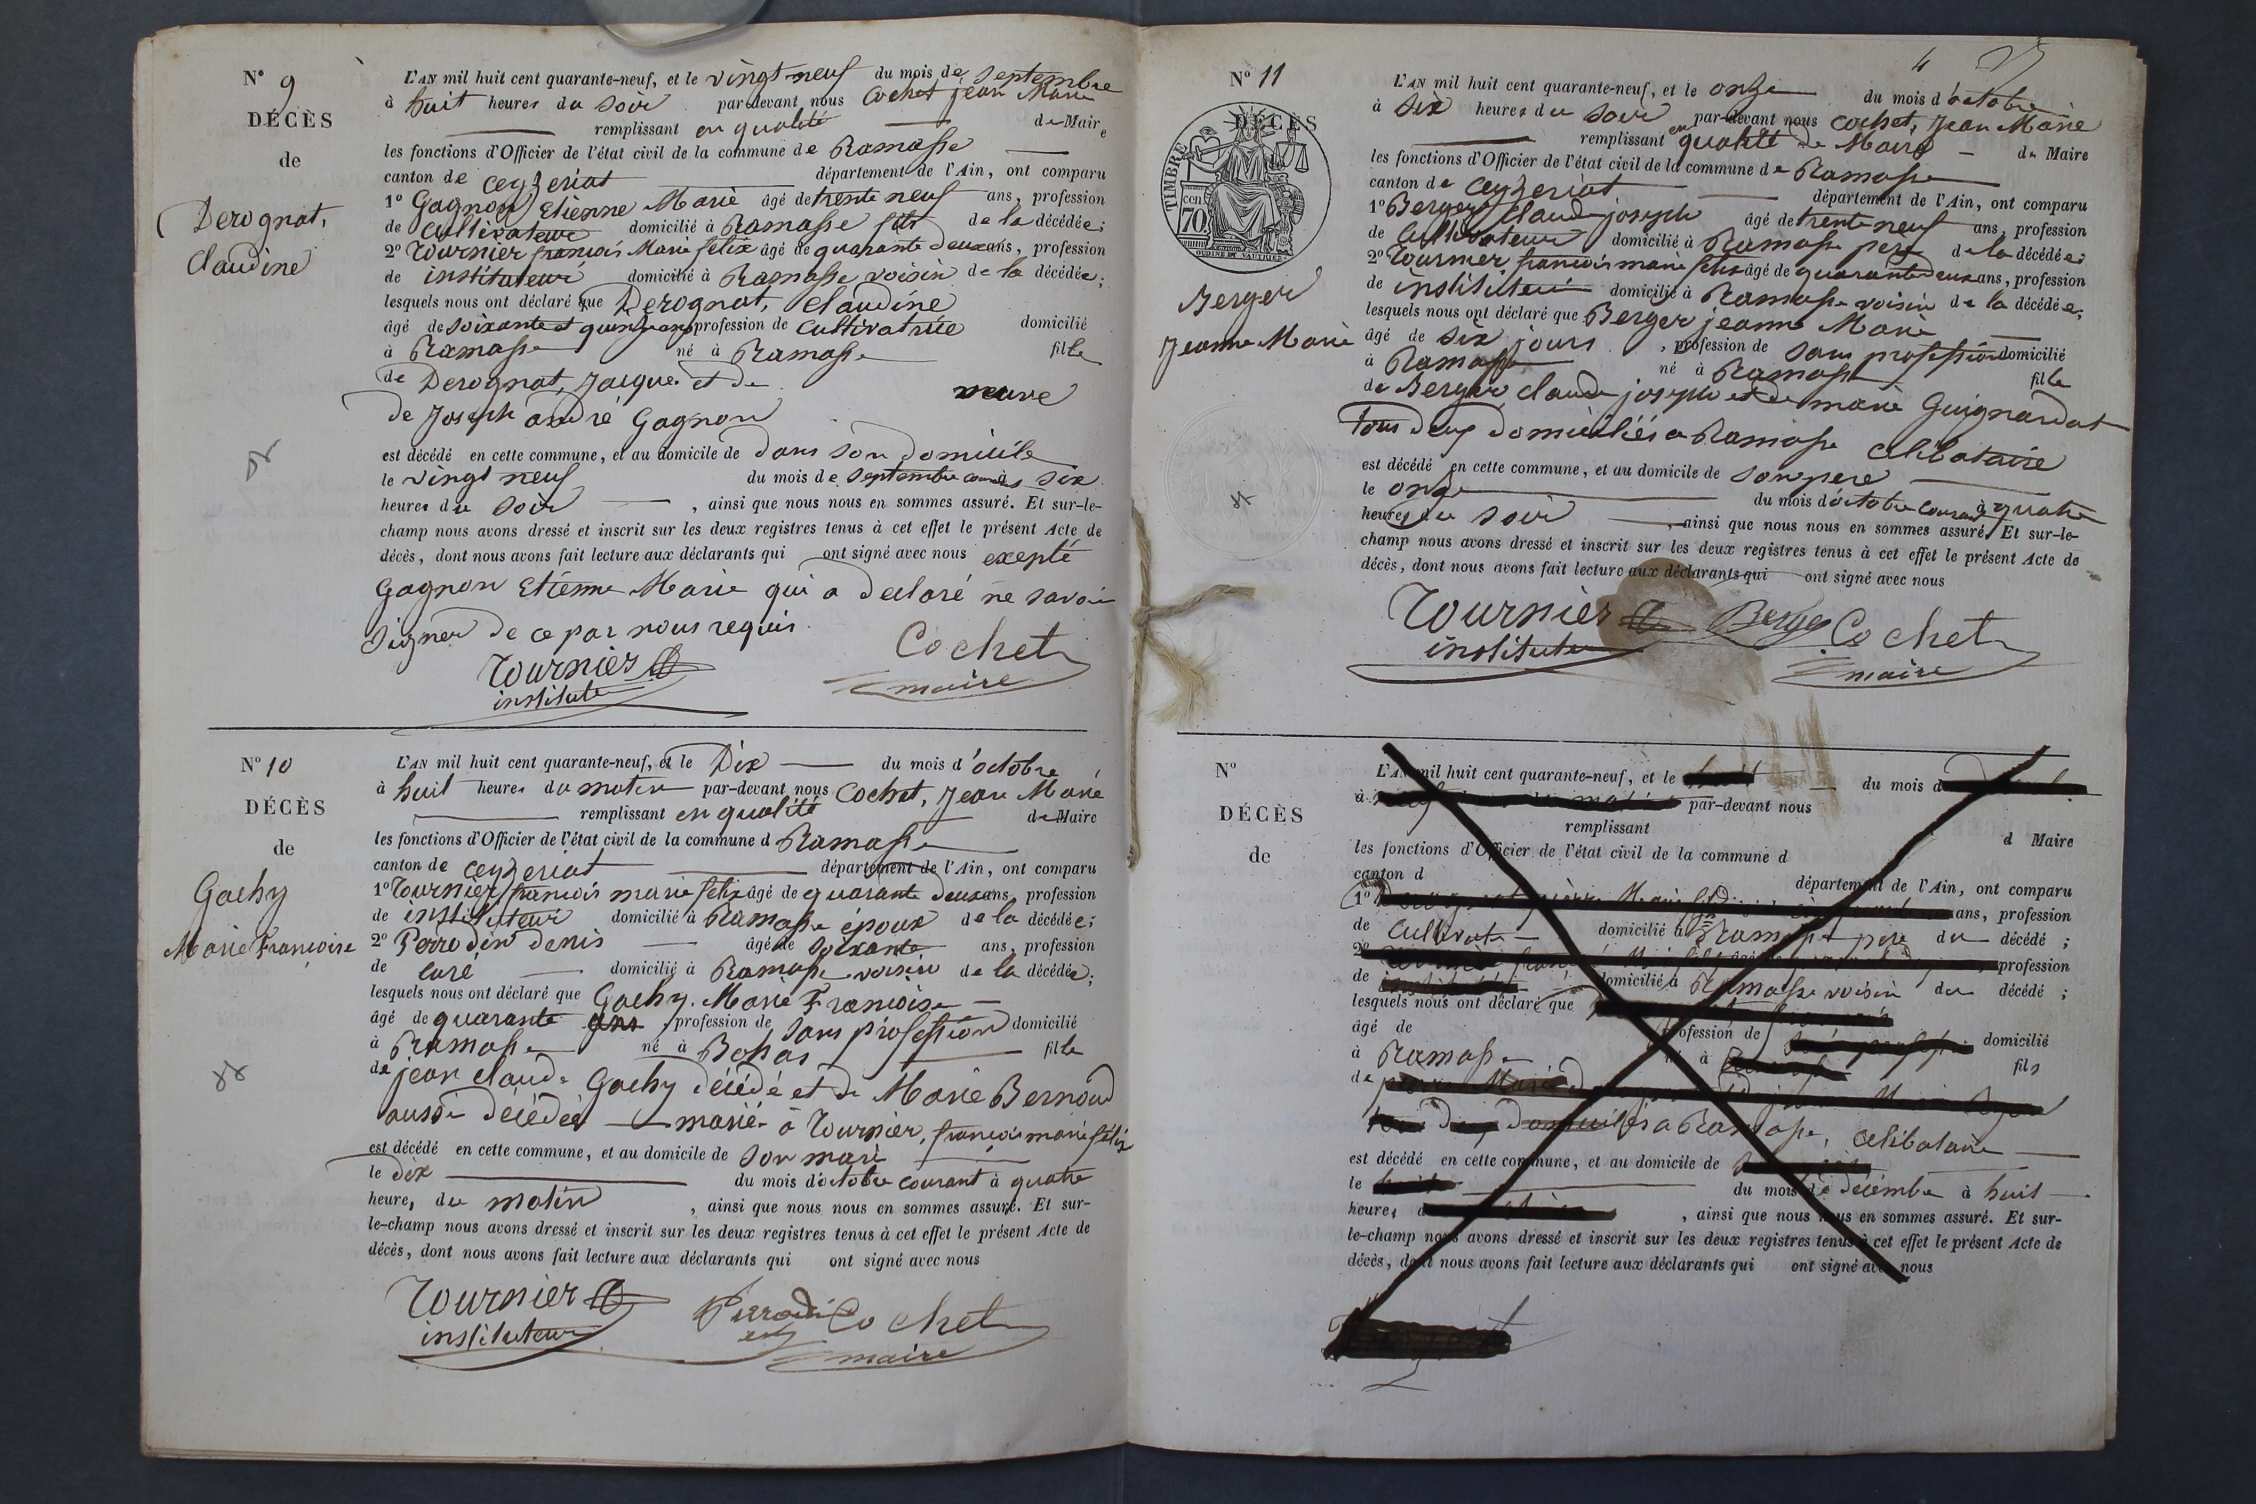 N° 9
DÉCÈS
de
Derognat,
Claudine
L'AN mil huit cent quarante-neuf, et le vingt neuf du mois de septembre
à huit heures du soir par-devant nous Cochet jean Marie
remplissant en qualité de Maire
les fonctions d'Officier de l'état civil de la commune de Ramasse
canton de ceyzeriat département de l'Ain, ont comparu
1° Gagnon Etienne Marie âgé de trente neuf ans, profession
de cultivateur domicilié à Ramasse fils de la décédée;
2° Tournier francois Marie felix âgé de quarante deux ans, profession
de instituteur domicilié à Ramasse voisin de la décédée;
lesquels nous ont déclaré que Derognat, Claudine
âgé de soixante et quinze ans profession de cultivatrice domicilié
à Ramasse né à Ramasse fille
de Derognat, Jacque et de veuve
de Joseph andré Gagnon
est décédé en cette commune, et au domicile de dans son domicile
le vingt neuf du mois de septembre courant à six
heures du soir , ainsi que nous nous en sommes assuré. Et sur-le-
champ nous avons dressé et inscrit sur les deux registres tenus à cet effet le présent Acte de
décès, dont nous avons fait lecture aux déclarants qui ont signé avec nous exepté
Gagnon Etienne Marie qui a declaré ne savoir
signer de ce par nous requis.
Tournier Cochet
institute maire
N° 10
DÉCÈS
de
Gachy
Marie Françoise
L'AN mil huit cent quarante-neuf, et le Dix du mois d'octobre
à huit heures du matin par-devant nous Cochet, Jean Marie
remplissant en qualité de Maire
les fonctions d'Officier de l'état civil de la commune d Ramasse
canton de ceyzeriat département de l'Ain, ont comparu
1° Tournier, francois marie felix âgé de quarante deux ans, profession
de instituteur domicilié à Ramasse époux de la décédée;
2° Perrodin denis âgé de soixante ans, profession
de curé domicilié à Ramasse voisin de la décédée;
lesquels nous ont déclaré que Gachy. Marie Francoise
âgé de quarante ans, profession de sans profession domicilié
à Ramasse né à Bohas fille
de jean claude Gachy décédé et de Marie Bernoud
aussi décédée mariée à Tournier, francois marie félix
est décédé en cette commune, et au domicile de son mari
le dix du mois d'octobre courant à quatre
heures du matin , ainsi que nous nous en sommes assuré. Et sur-
le-champ nous avons dressé et inscrit sur les deux registres tenus à cet effet le présent Acte de
décès, dont nous avons fait lecture aux déclarants qui ont signé avec nous
Tournier Perrodin Cochet
instituteur maire
4
N° 11
DÉCÈS
TIMBRE
70
OUDINÉ DT VAUTHIER
Berger
Jeanne Marie
L'AN mil huit cent quarante-neuf, et le onze du mois d'octobre
à six heures du soir par-devant nous Cochet, Jean Marie
remplissant en qualité de Maire de Maire
les fonctions d'Officier de l'état civil de la commune de Ramasse
canton de Ceyzeriat département de l'Ain, ont comparu
1° Berger, claude joseph âgé de trente neuf ans, profession
de Cultivateur domicilié à Ramasse pere de la décédée;
2° Tournier francois marie felix âgé de quarante deux ans, profession
de instituteur domicilié à Ramasse voisin de la décédée;
lesquels nous ont déclaré que Berger jeanne Marie
âgé de six jours , profession de sans profession domicilié
à Ramasse né à Ramasse fille
de Berger, claude joseph et de marie Guignardat
tous deux domiciliés a Ramasse celibataire
est décédé en cette commune, et au domicile de son pere
le onze du mois d'octobre courant à quatre
heures du soir , ainsi que nous nous en sommes assuré. Et sur-le-
champ nous avons dressé et inscrit sur les deux registres tenus à cet effet le présent Acte de
décès, dont nous avons fait lecture aux déclarants qui ont signé avec nous
Tournier Berger Cochet
institute maire
N°
DÉCÈS
de
L'AN mil huit cent quarante-neuf, et le du mois d
à par-devant nous
remplissant d Maire
les fonctions d'Officier de l'état civil de la commune d
canton d département de l'Ain, ont comparu
1° ans, profession
de Cultivate domicilié à Ramasse pere du décédé;
2° profession
de domicilié à Ramasse voisin du décédé;
lesquels nous ont déclaré que
âgé de profession de domicilié
à Ramasse né à fils
de
deux domiciliés a Ramasse, celibataire
est décédé en cette commune, et au domicile de
le du mois de décembre à huit
heures d , ainsi que nous nous en sommes assuré. Et sur-
le-champ nous avons dressé et inscrit sur les deux registres tenus à cet effet le présent Acte de
décès, dont nous avons fait lecture aux déclarants qui ont signé avec nous